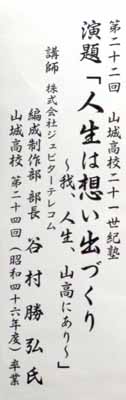 第二十二回　山城高校二十一世紀塾
演題「人生は想い出づくり
～我、人生、山高にあり～」
講師　株式会社ジュピターテレコム
編成制作部　部長　谷村勝弘氏
山城高校　第二十四回（昭和四十六年度）卒業